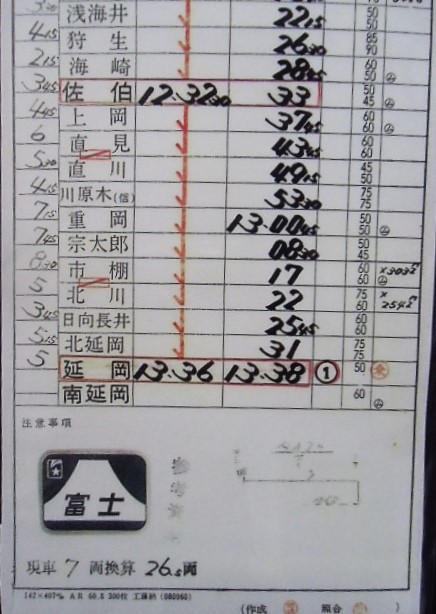 浅海井 22 15 50 50
4 15 狩生 26 30 85 90
2 15 海崎 28 45 60 50
3 45 佐伯 12.32 30 33 50 45
4 45 上岡 37 45 60 60
6 直見 43 45 60 60
5 30 直川 49 15 45 50
4 15 川原木(信) 53 30 75 75
7 15 重岡 13.00 45 50 50
7 45 宗太郎 08 30 50 45
8 30 市棚 17 60 60
5 北川 22 75 60
3 45 日向長井 25 45 60 60
5 15 北延岡 31 75 75
5 延岡 13.36 13.38 ① 50
南延岡 60
注意事項
富士
現車 7 両換算 26.5両
(作成 照合